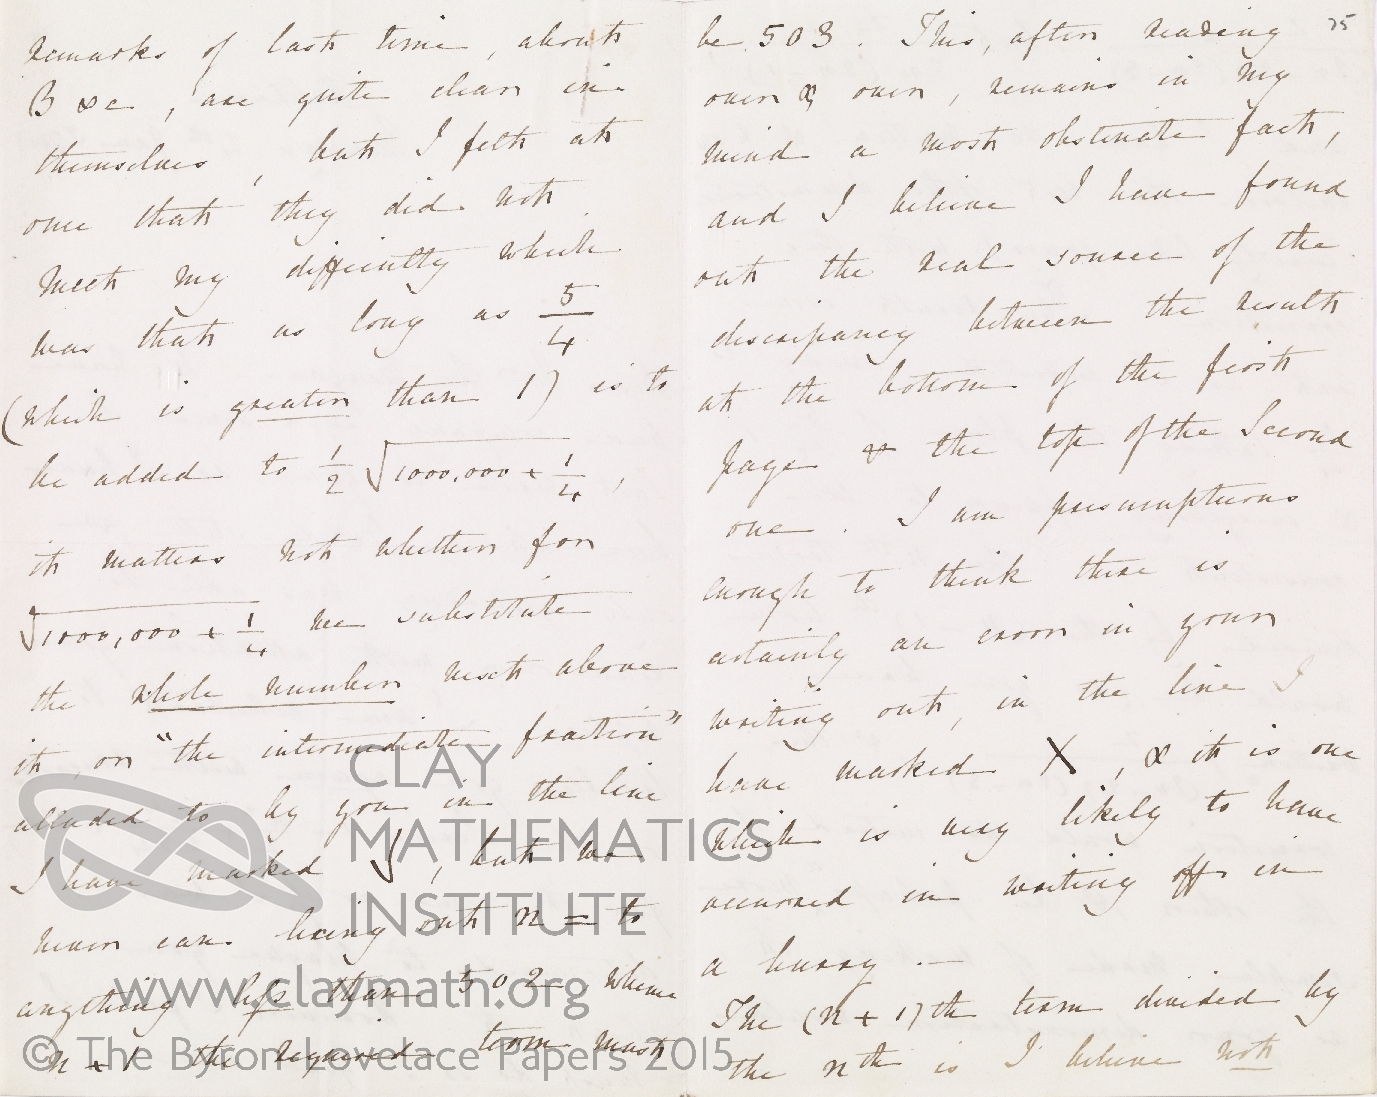 remarks of last time, about
B &c, are quite clear in
themselves, but I felt at
once that they did not
meet my difficulty which
was that as long as 5/4
(which is greater than 1) is to
be added to 1/2 √1000,000 + 1/4,
it matters not whether for
√1000,000 + 1/4 we substitute
the whole number next above
it, or "the intermediate fraction"
alluded to by you in the line
I have marked √, but we
never can bring out n = to
anything less than 502 whence
n + 1 the required term must
25
be 503. This, after reading
over & over, remains in my
mind a most obstinate fact,
and I believe I have found
out the real source of the
discrepancy between the results
at the bottom of the first
page & the top of the second
one. I am presumptuous
enough to think there is
certainly an error in your
writing out, in the line I
have marked X, & it is one
which is very likely to have
occurred in writing off in
a hurry.—
The (n + 1)th term divided by
the nth is I believe not
CLAY
MATHEMATICS
INSTITUTE
www.claymath.org
© The Byron-Lovelace Papers 2015